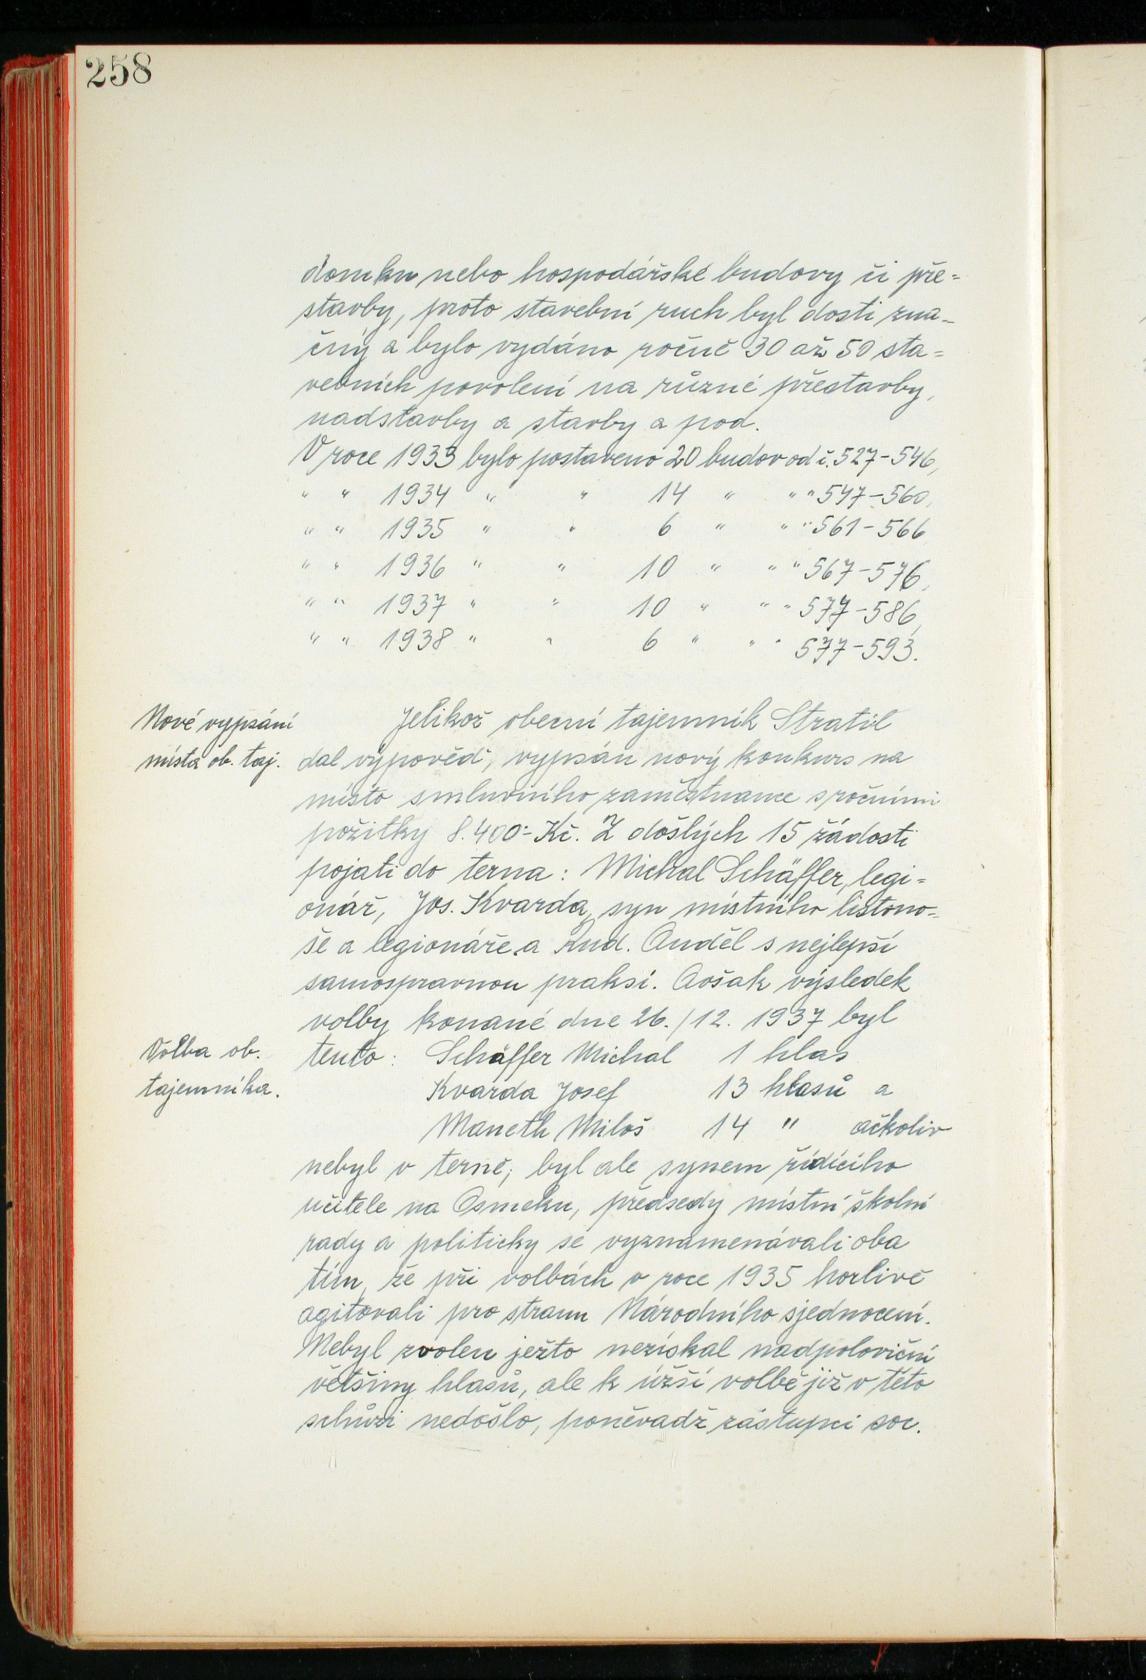 258
domku nebo hospodářské budovy či pře=
stavby, proto stavební ruch byl dosti zna-
čný a bylo vydáno ročně 30 až 50 sta=
vebních povolení na různé přestavby,
nadstavby a stavby a pod.
V roce 1933 bylo postaveno 20 budov od č. 527-546,
" " 1934 " " 14 " " " 547-560,
" " 1935 " " 6 " " " 561-566
" " 1936 " " 10 " " " 567-576,
" " 1937 " " 10 " " " 577-586,
" " 1938 " " 6 " " " 577-593.
Nové vypsání
místa ob. taj.
Jelikož obecní tajemník Stratil
dal výpověď, vypsán nový konkurs na
místo smluvního zaměstnance s ročními
požitky 8.400·- Kč. Z došlých 15 žádosti
pojati do terna: Michal Schäffer, legi=
onář, Jos. Kvarda, syn místního listono=
še a legionáře a Rud. Anděl s nejlepší
samospravnou praksí. Avšak výsledek
volby konané dne 26./12. 1937 byl
Volba ob.
tajemníka.
tento: Schäffer Michal 1 hlas
Kvarda Josef 13 hlasů a
Maneth Miloš 14 " ačkoliv
nebyl v terně, byl ale synem řídícího
učitele na Osmeku, předsedy místní školní
rady a politicky se vyznamenávali oba
tím, že při volbách v roce 1935 horlivě
agitovali pro stranu Národního sjednocení.
Nebyl zvolen ježto nezískal nadpoloviční
většiny hlasů, ale k užší volbě již v této
schůzi nedošlo, poněvadž zástupci soc.